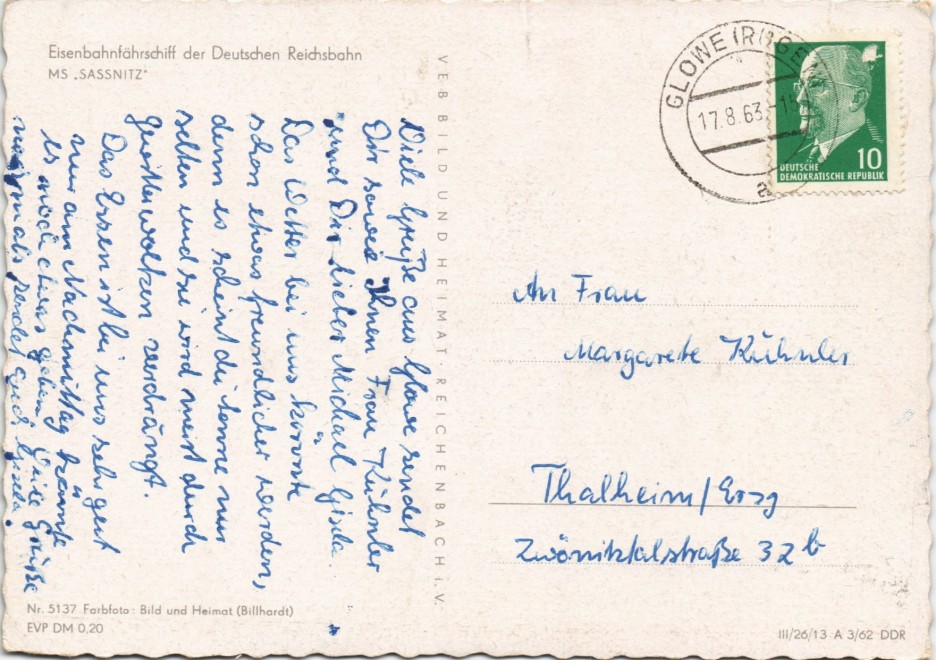 Eisenbahnfährschiff der Deutschen Reichsbahn
MS „SASSNITZ"
GLOWE (RÜGEN)
17.8.63
a
DEUTSCHE
DEMOKRATISCHE REPUBLIK
10
VEB BILD UND HEIMAT · REICHENBACH i. V.
Viele Grüße aus Glowe sendet
Dir sowie Ihnen Frau Kühnler
und Dir lieber Michael Gisela.
Das Wetter bei uns könnte
schon etwas freundlicher werden,
denn es scheint die Sonne nur
selten und sie wird meist durch
Gewitterwolken verdrängt.
Das Essen ist bei uns sehr gut
nur am Nachmittag könnte
es noch etwas geben. Viele Grüße
nochmals sendet euch Gisela.
An Frau
Margarete Kühnler
Thalheim/Erzg
Zwönitztalstraße 32b
Nr. 5137 Farbfoto: Bild und Heimat (Billhardt)
EVP DM 0,20
III/26/13 A 3/62 DDR